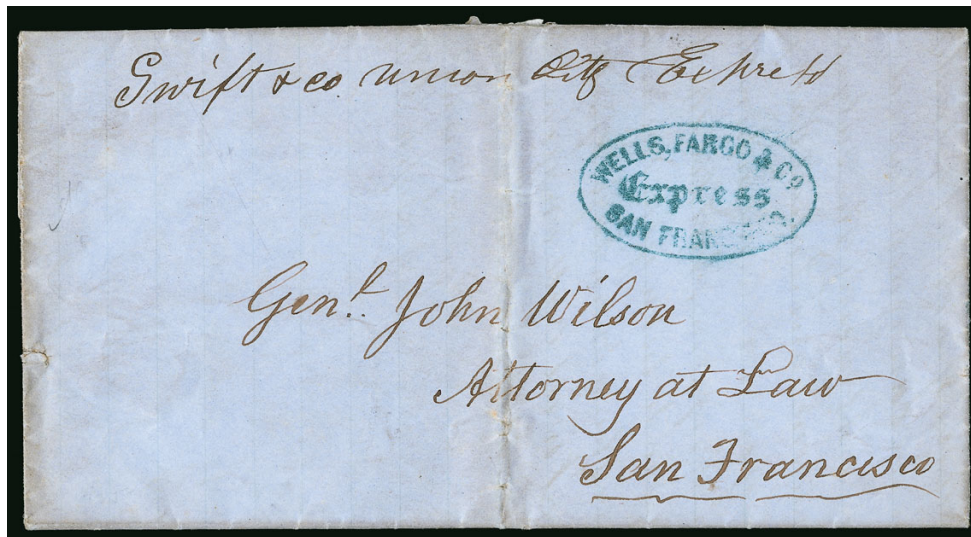 Swift & co. Union City Express
WELLS, FARGO & CO.
Express
SAN FRANCISCO.
Genl. John Wilson
Attorney at Law
San Francisco